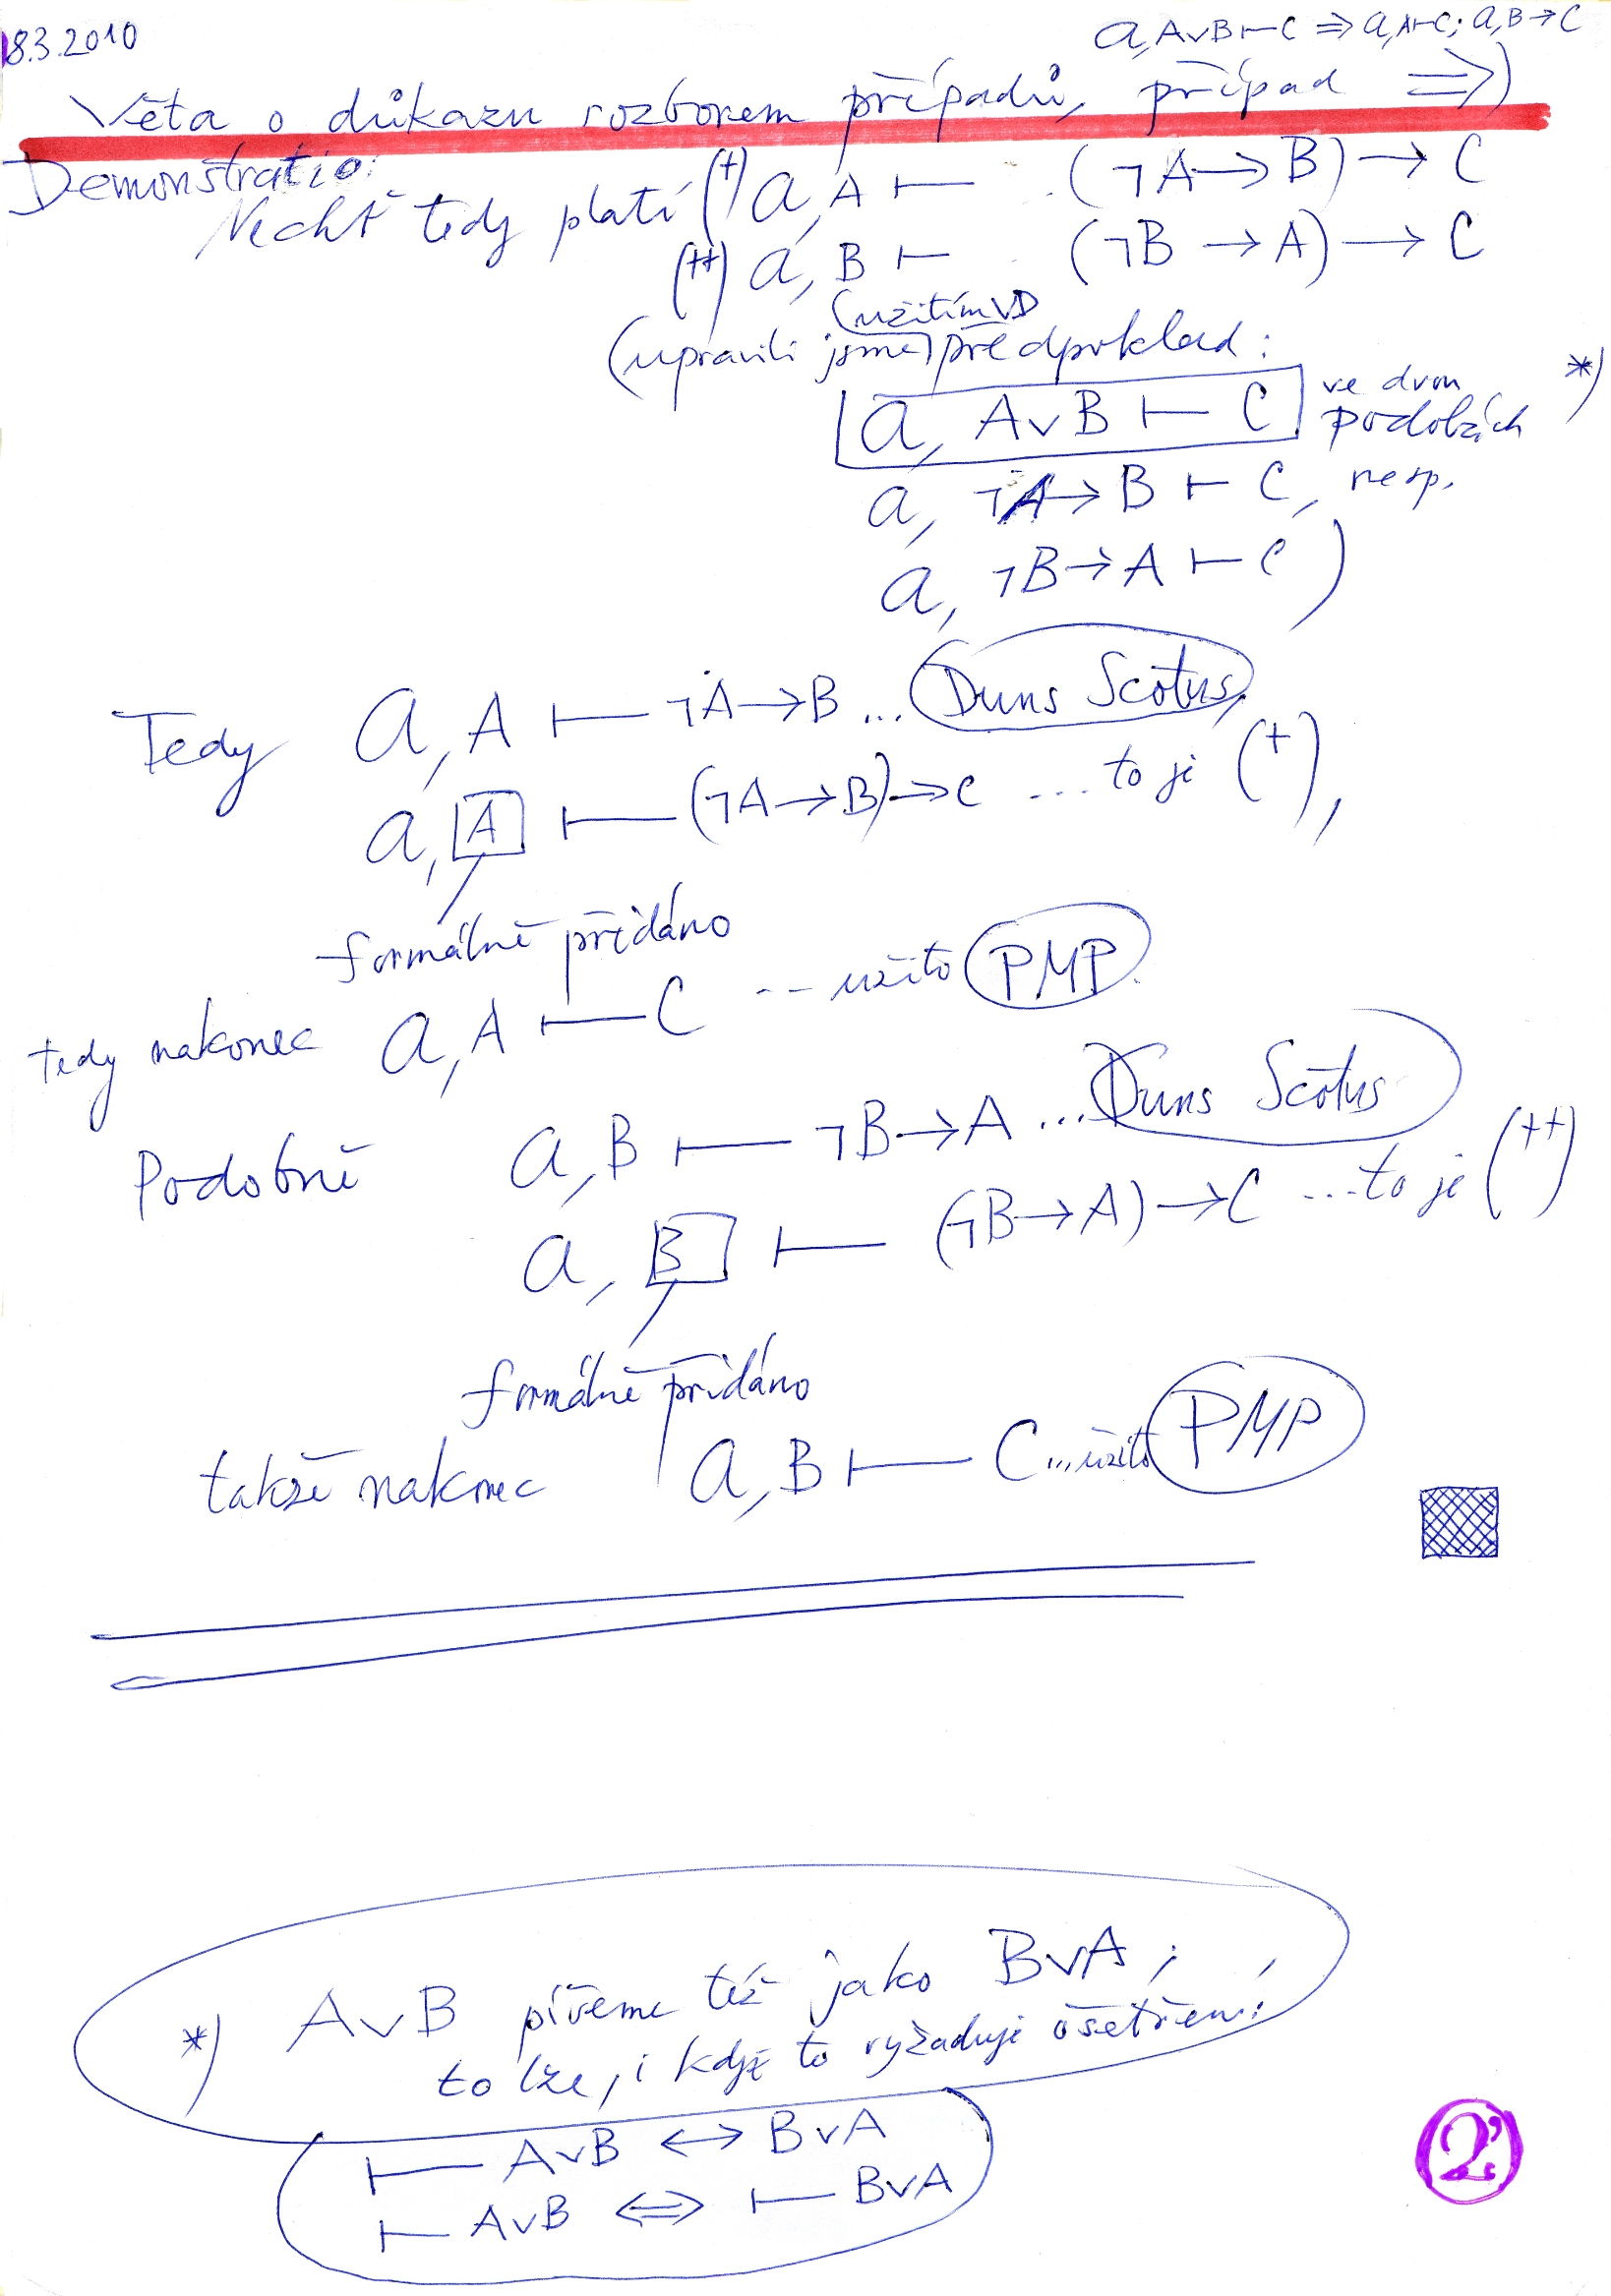 8.3.2010
a, A∨B ⊢ C ⇒ a, A ⊢ C; a, B → C
Věta o důkazu rozborem případů, případ ⇒)
Demonstratio:
Nechť tedy platí (+) a, A ⊢ (¬A → B) → C
(++) a, B ⊢ (¬B → A) → C
(užitím VD)
(upravili jsme předpoklad:
a, A∨B ⊢ C ve dvou podobách *)
a, ¬A → B ⊢ C, resp.
a, ¬B → A ⊢ C)
Tedy a, A ⊢ ¬A → B ... Duns Scotus,
a, A ⊢ (¬A → B) → C ... to je (+),
formálně přidáno
tedy nakonec a, A ⊢ C -- užito PMP.
Podobně a, B ⊢ ¬B → A ... Duns Scotus
a, B ⊢ (¬B → A) → C ... to je (++)
formálně přidáno
takže nakonec a, B ⊢ C ... užito PMP
*) A∨B píšeme též jako B∨A;
to lze, i když to vyžaduje ošetření:
⊢ A∨B ↔ B∨A
⊢ A∨B ⇔ ⊢ B∨A
2'